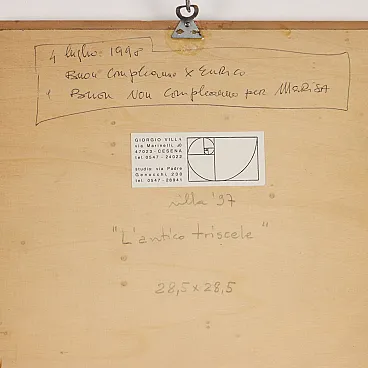 4 luglio 1998
Buon Compleanno x Enrico
1 Buon Non Compleanno per Marisa
GIORGIO VILLA
via Marinelli,
47023 - CESENA
tel. 0547 - 24022
studio: via Padre
Genocchi, 230
tel. 0547 - 28841
villa '97
"L'antico triscele"
28,5 x 28,5